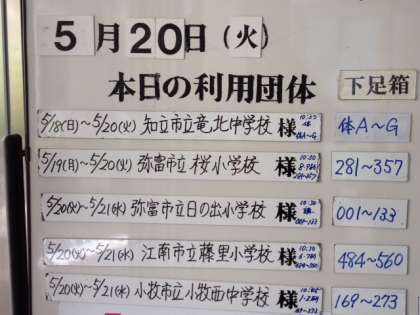 5月20日(火)
本日の利用団体 下足箱
5/18(日)～5/20(火) 知立市立竜北中学校 様 体A～G
5/19(月)～5/20(火) 弥富市立桜小学校 様 281～357
5/20(火)～5/21(水) 弥富市立日の出小学校 様 001～133
5/20(火)～5/21(水) 江南市立藤里小学校 様 484～560
5/20(火)～5/21(水) 小牧市立小牧西中学校 様 169～273